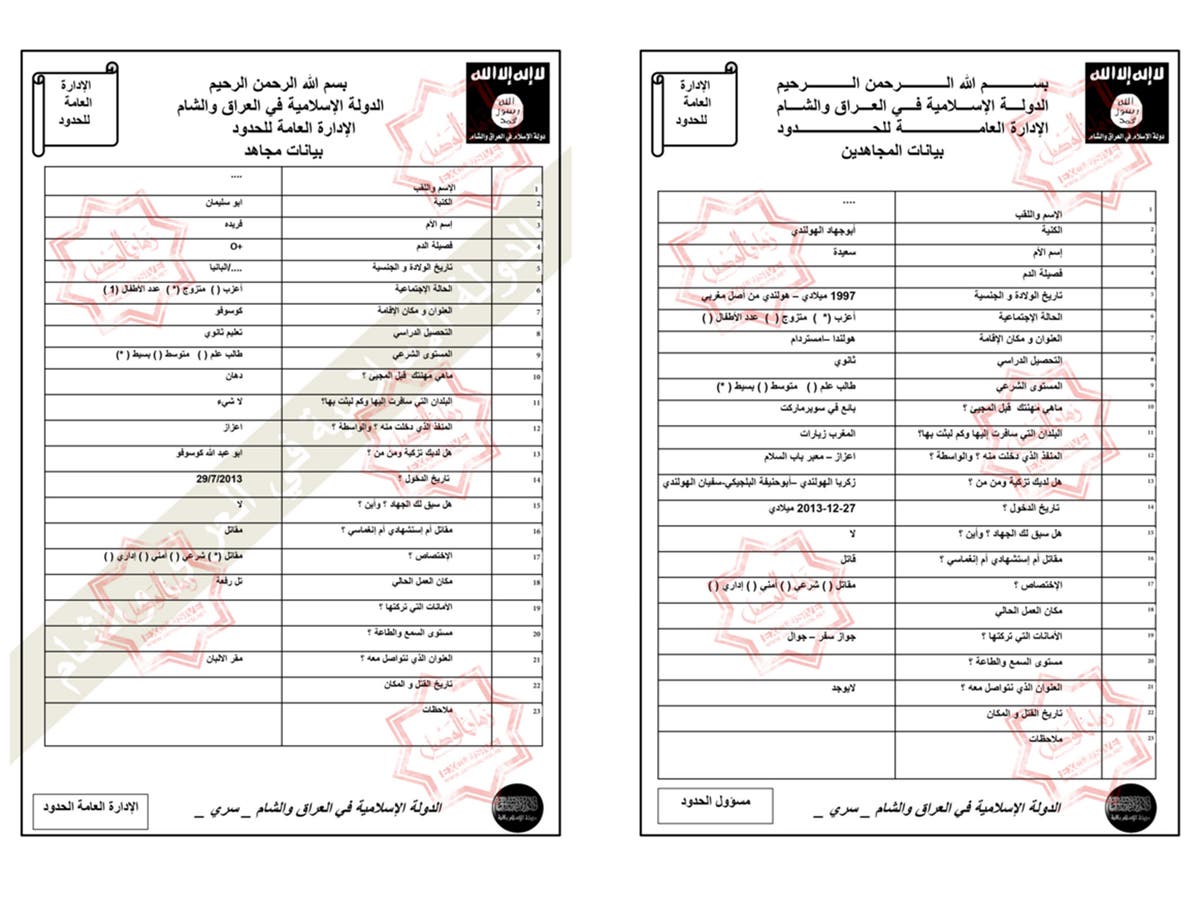 الإدارة
العامة
للحدود
بسم الله الرحمن الرحيم
الدولة الإسلامية في العراق والشام
الإدارة العامة للحدود
بيانات مجاهد
لا إله إلا الله
الله
رسول
محمد
دولة الإسلام في العراق والشام
1 الإسم واللقب ....
2 الكنية ابو سليمان
3 إسم الأم فريده
4 فصيلة الدم O+
5 تاريخ الولادة و الجنسية ..../البانيا
6 الحالة الإجتماعية أعزب ( ) متزوج (*) عدد الأطفال (1 )
7 العنوان و مكان الإقامة كوسوفو
8 التحصيل الدراسي تعليم ثانوي
9 المستوى الشرعي طالب علم ( ) متوسط ( ) بسيط ( *)
10 ماهي مهنتك قبل المجيئ ؟ دهان
11 البلدان التي سافرت إليها وكم لبثت بها؟ لا شيء
12 المنفذ الذي دخلت منه ؟ والواسطة ؟ اعزاز
13 هل لديك تزكية ومن من ؟ ابو عبد الله كوسوفو
14 تاريخ الدخول ؟ 29/7/2013
15 هل سبق لك الجهاد ؟ وأين ؟ لا
16 مقاتل أم إستشهادي أم إنغماسي ؟ مقاتل
17 الإختصاص ؟ مقاتل (*) شرعي ( ) أمني ( ) إداري ( )
18 مكان العمل الحالي تل رفعة
19 الأمانات التي تركتها ؟
20 مستوى السمع والطاعة ؟
21 العنوان الذي نتواصل معه ؟ مقر الالبان
22 تاريخ القتل و المكان
23 ملاحظات
الدولة الإسلامية في العراق والشام _ سري _
الإدارة العامة الحدود
الإدارة
العامة
للحدود
بسم الله الرحمن الرحيم
الدولة الإسلامية في العراق والشام
الإدارة العامة للحدود
بيانات المجاهدين
لا إله إلا الله
الله
رسول
محمد
دولة الإسلام في العراق والشام
1 الإسم واللقب ....
2 الكنية أبوجهاد الهولندي
3 إسم الأم سعيدة
4 فصيلة الدم
5 تاريخ الولادة و الجنسية 1997 ميلادي – هولندي من أصل مغربي
6 الحالة الإجتماعية أعزب (* ) متزوج ( ) عدد الأطفال ( )
7 العنوان و مكان الإقامة هولندا –امستردام
8 التحصيل الدراسي ثانوي
9 المستوى الشرعي طالب علم ( ) متوسط ( ) بسيط ( *)
10 ماهي مهنتك قبل المجيئ ؟ بائع في سوبرماركت
11 البلدان التي سافرت إليها وكم لبثت بها؟ المغرب زيارات
12 المنفذ الذي دخلت منه ؟ والواسطة ؟ اعزاز – معبر باب السلام
13 هل لديك تزكية ومن من ؟ زكريا الهولندي –أبوحنيفة البلجيكي-سفيان الهولندي
14 تاريخ الدخول ؟ 27-12-2013 ميلادي
15 هل سبق لك الجهاد ؟ وأين ؟ لا
16 مقاتل أم إستشهادي أم إنغماسي ؟ قاتل
17 الإختصاص ؟ مقاتل ( ) شرعي ( ) أمني ( ) إداري ( )
18 مكان العمل الحالي
19 الأمانات التي تركتها ؟ جواز سفر – جوال
20 مستوى السمع والطاعة ؟
21 العنوان الذي نتواصل معه ؟ لايوجد
22 تاريخ القتل و المكان
23 ملاحظات
الدولة الإسلامية في العراق والشام _ سري _
مسؤول الحدود